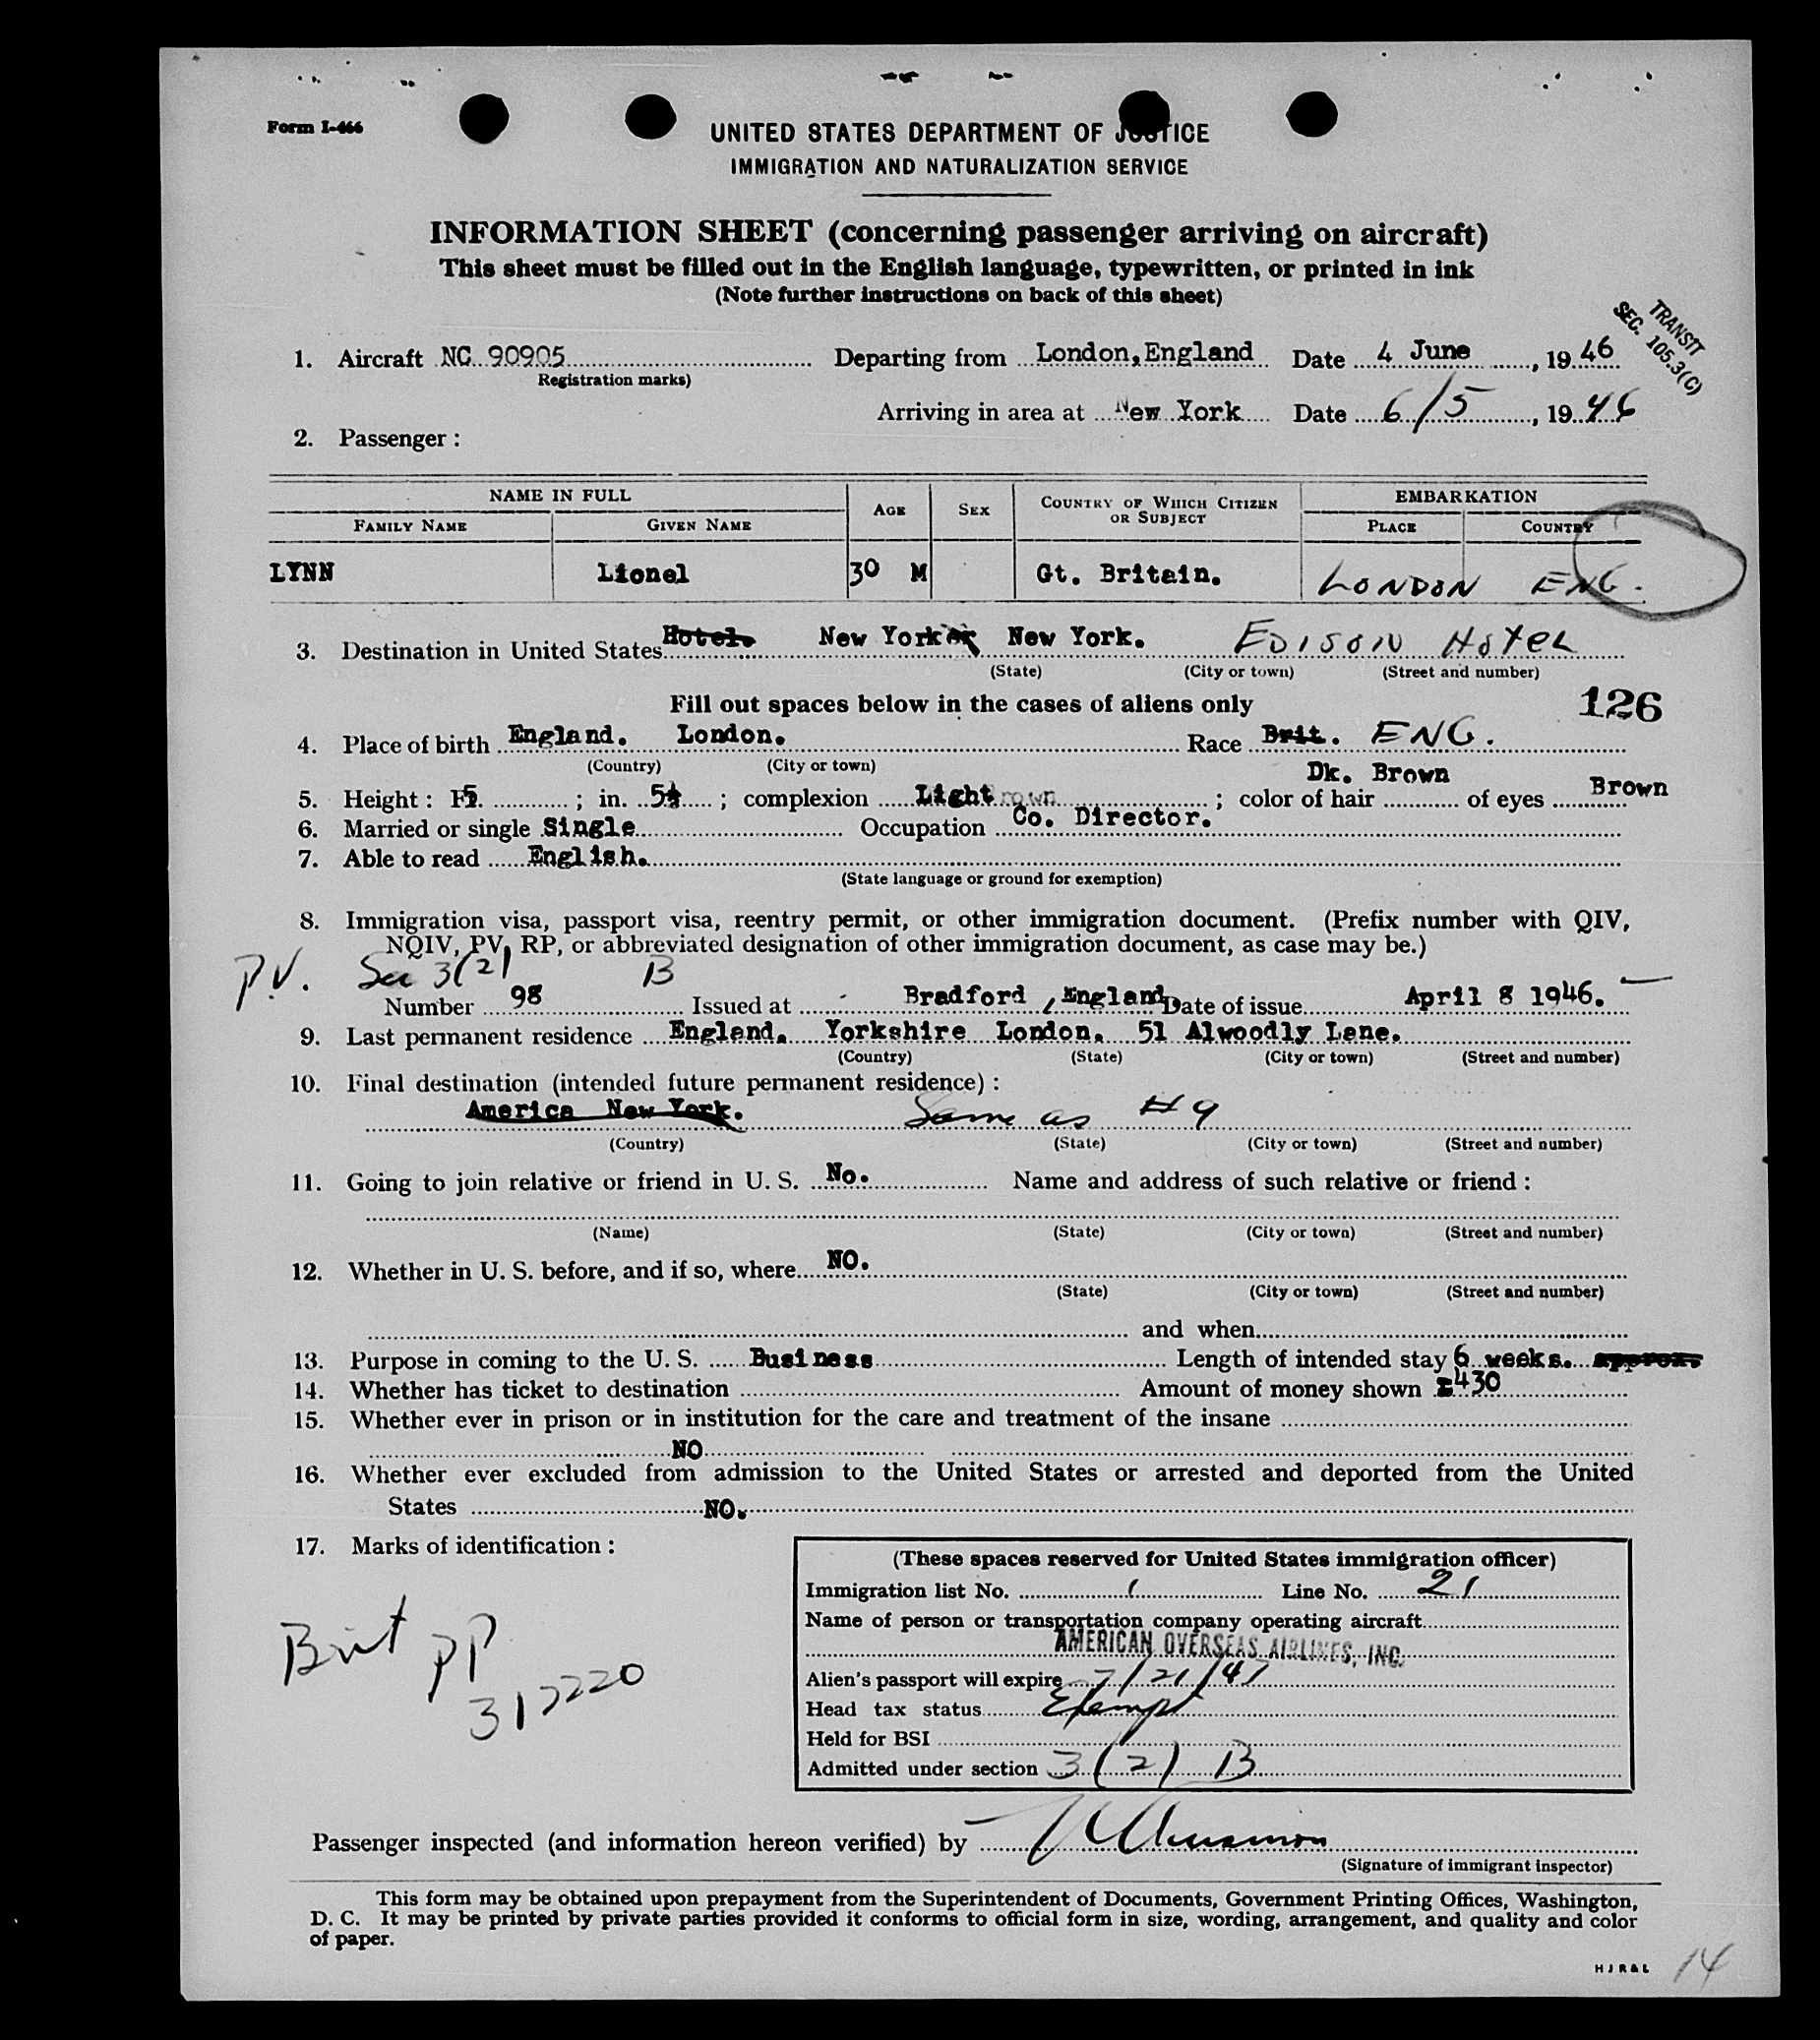 Form I-466
UNITED STATES DEPARTMENT OF JUSTICE
IMMIGRATION AND NATURALIZATION SERVICE
INFORMATION SHEET (concerning passenger arriving on aircraft)
This sheet must be filled out in the English language, typewritten, or printed in ink
(Note further instructions on back of this sheet)
TRANSIT
SEC. 105.3(C)
1. Aircraft NC 90905 Departing from London, England Date 4 June, 1946
Registration marks)
Arriving in area at New York Date 6/5, 1946
2. Passenger:
NAME IN FULL AGE SEX COUNTRY OF WHICH CITIZEN OR SUBJECT EMBARKATION
FAMILY NAME GIVEN NAME PLACE COUNTRY
LYNN Lionel 30 M Gt. Britain. LONDON ENG.
3. Destination in United States Hotel. New Yorker New York. EDISON HOTEL
(State) (City or town) (Street and number)
Fill out spaces below in the cases of aliens only 126
4. Place of birth England. London. Race Brit. ENG.
(Country) (City or town)
5. Height: Ft. 5 ; in. 5½ ; complexion Light ; color of hair Dk. Brown of eyes Brown
6. Married or single Single Occupation Co. Director.
7. Able to read English.
(State language or ground for exemption)
8. Immigration visa, passport visa, reentry permit, or other immigration document. (Prefix number with QIV,
NQIV, PV, RP, or abbreviated designation of other immigration document, as case may be.)
P.V. Sec 3(2) B
Number 98 Issued at Bradford, England. Date of issue April 8 1946.
9. Last permanent residence England. Yorkshire London. 51 Alwoodly Lane.
(Country) (State) (City or town) (Street and number)
10. Final destination (intended future permanent residence):
America New York. Same as #9
(Country) (State) (City or town) (Street and number)
11. Going to join relative or friend in U. S. No. Name and address of such relative or friend:
(Name) (State) (City or town) (Street and number)
12. Whether in U. S. before, and if so, where NO.
(State) (City or town) (Street and number)
and when
13. Purpose in coming to the U. S. Business Length of intended stay 6 weeks. approx.
14. Whether has ticket to destination Amount of money shown £430
15. Whether ever in prison or in institution for the care and treatment of the insane
NO
16. Whether ever excluded from admission to the United States or arrested and deported from the United
States NO.
17. Marks of identification:
Brit PP
317220
(These spaces reserved for United States immigration officer)
Immigration list No. 1 Line No. 21
Name of person or transportation company operating aircraft
AMERICAN OVERSEAS AIRLINES, INC.
Alien's passport will expire 7/21/47
Head tax status Exempt
Held for BSI
Admitted under section 3(2) B
Passenger inspected (and information hereon verified) by
(Signature of immigrant inspector)
This form may be obtained upon prepayment from the Superintendent of Documents, Government Printing Offices, Washington,
D. C. It may be printed by private parties provided it conforms to official form in size, wording, arrangement, and quality and color
of paper.
H J R & L 14